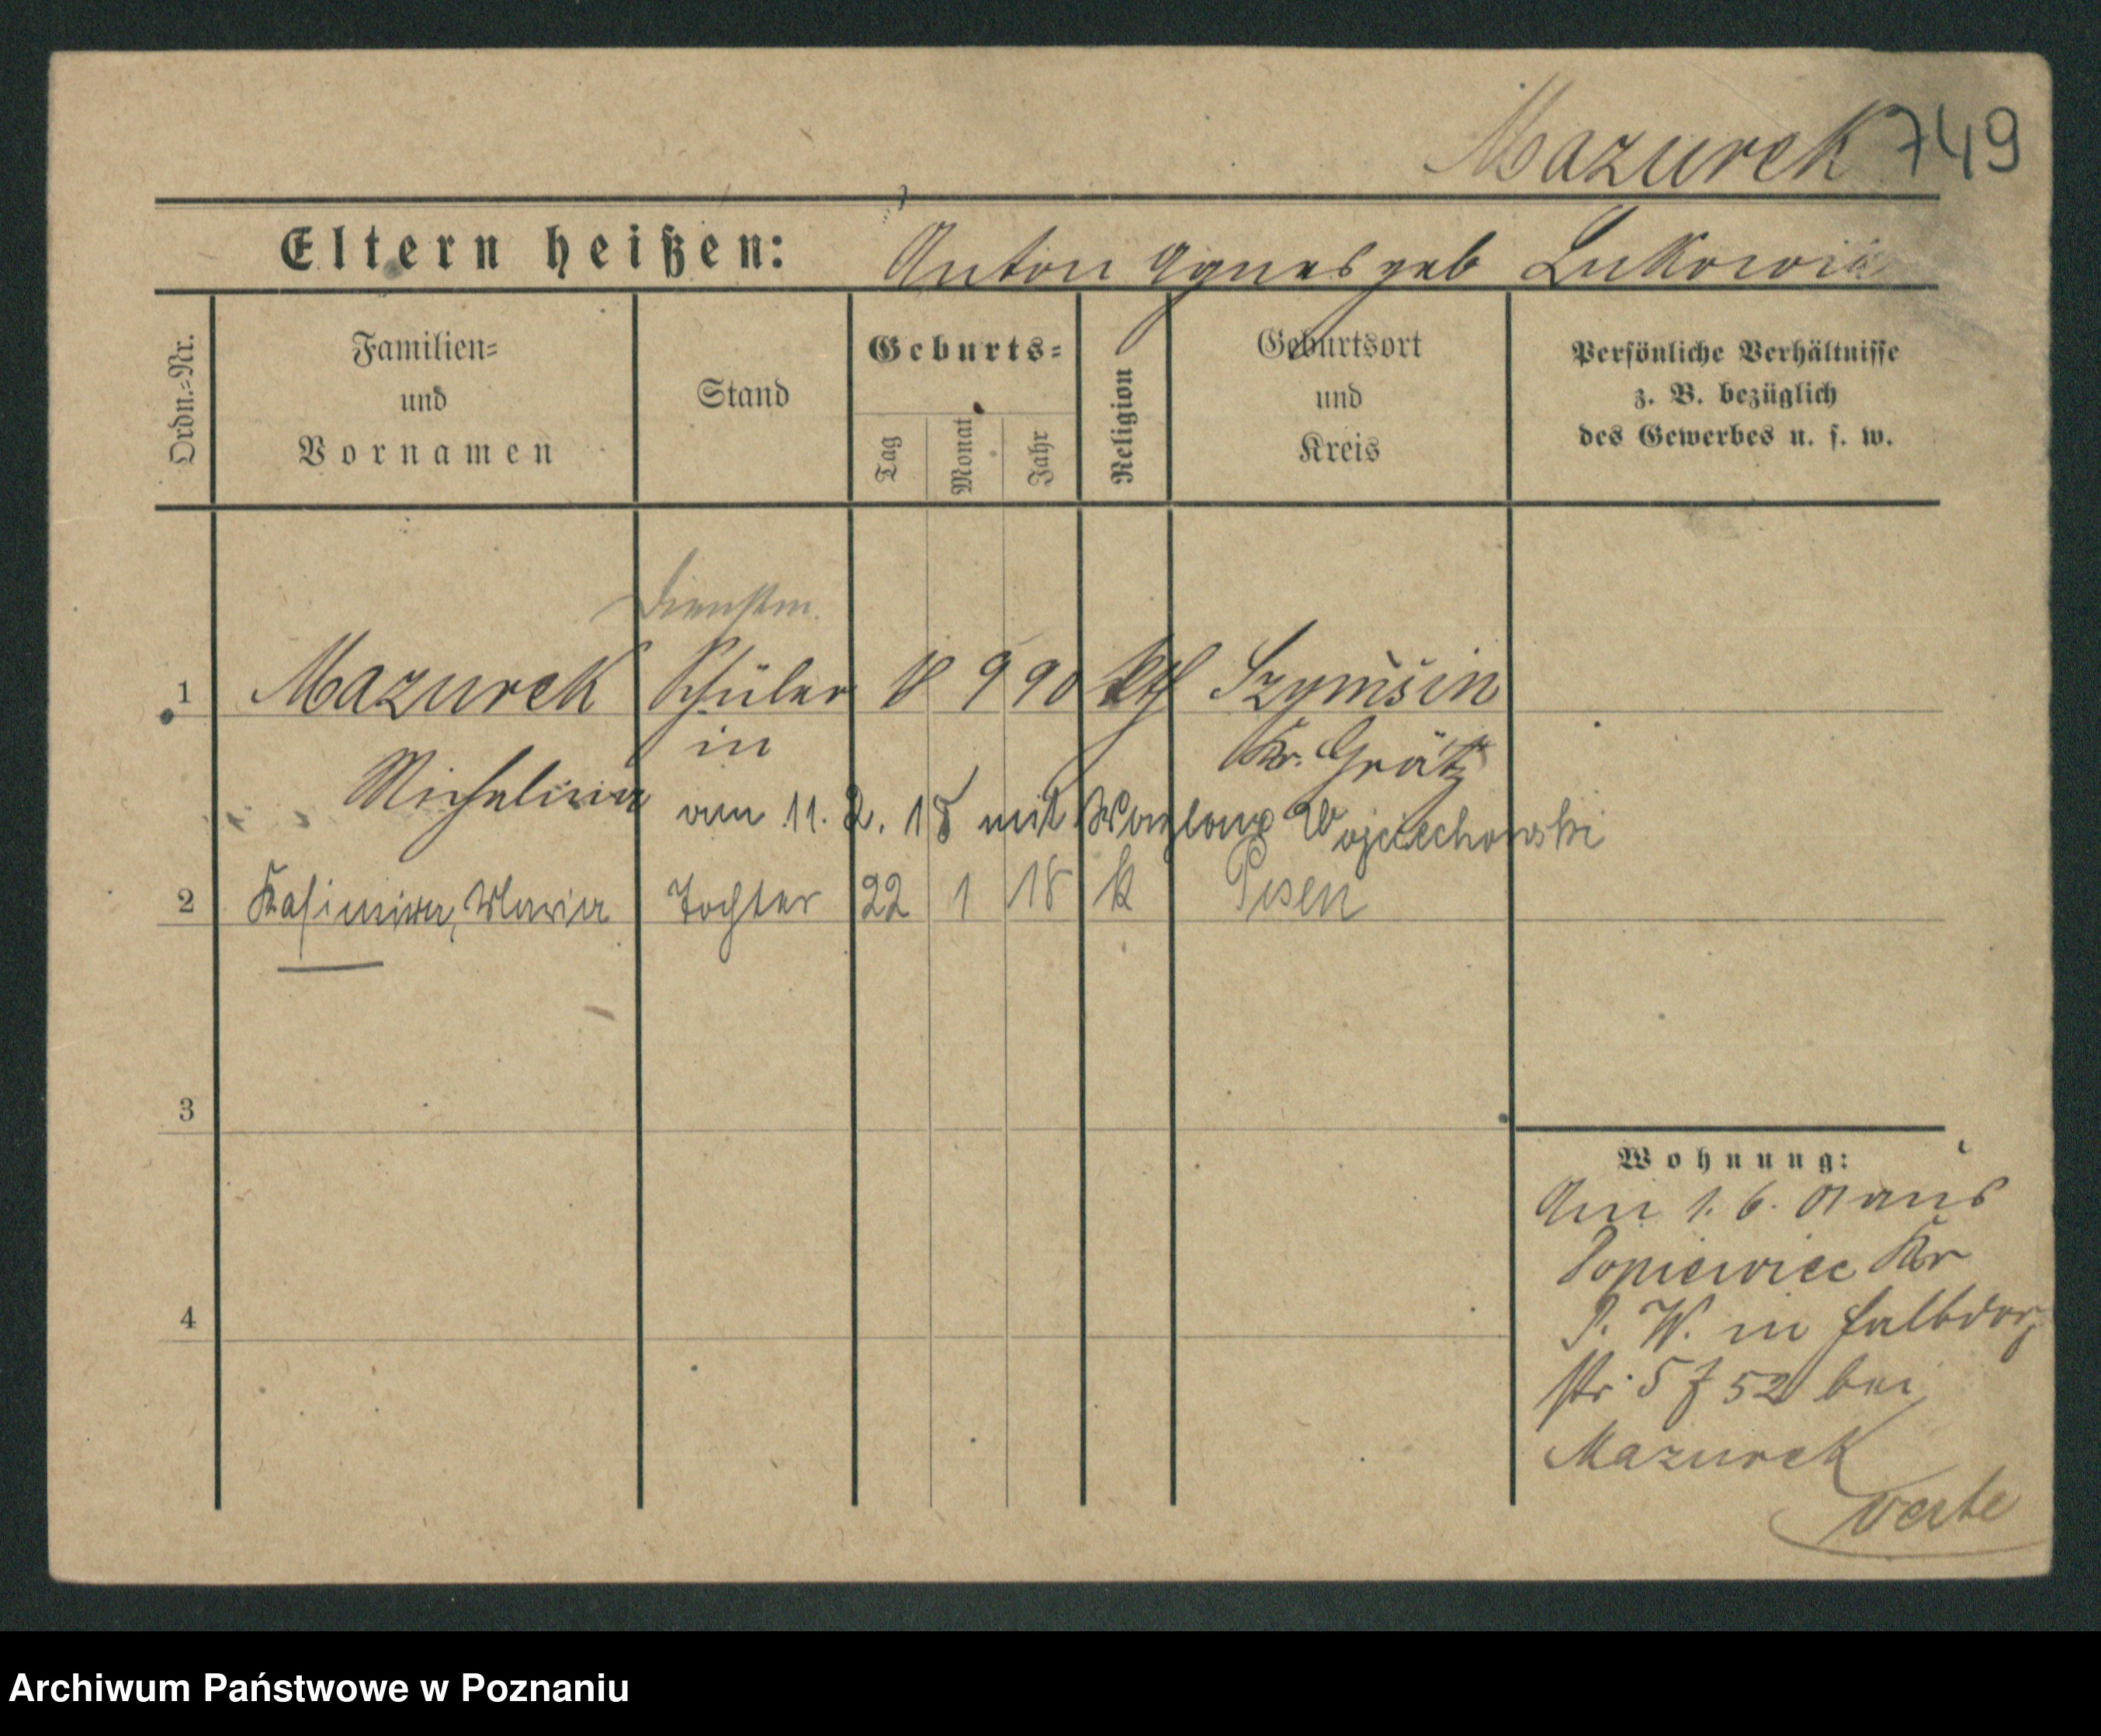 Mazurek 749
Eltern heißen: Anton Agnes geb Lukowiak
Ordn.-Nr.
Familien-
und
Vornamen
Stand
Geburts-
Tag
Monat
Jahr
Religion
Geburtsort
und
Kreis
Persönliche Verhältnisse
z. B. bezüglich
des Gewerbes u. s. w.
Dienstm.
1 Mazurek Schüler 18 9 90 kth
in Kr. Grätz
Michalina
am 11. 2. 18 mit Wojciechowski
2 Kasimira, Maria Tochter 22 1 18 k Posen
3
4
Wohnung:
Am 1. 6. 01 aus
Kr
P. W. in Halbdorf
str. 5 52 bei
Mazurek
verte
Archiwum Państwowe w Poznaniu